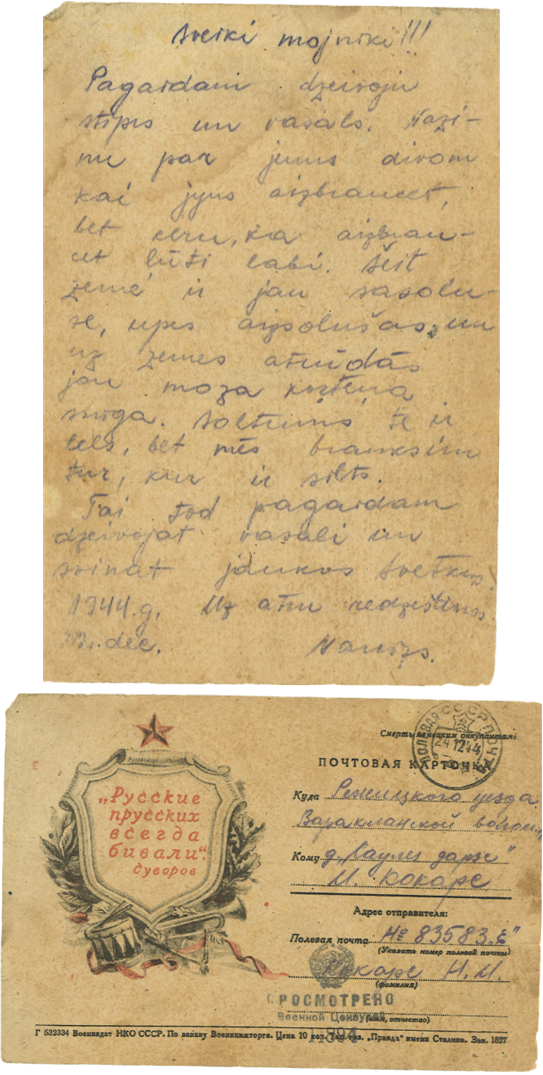 Sveiki mojnīki!!!
Pagaidam dzeivoju
stiprs un vasals. Nazi-
nu par jums divom
kai jyus aizbraucet,
bet ceru, ka aizbrau-
cet lūti labi. Šeit
zeme ir jau sasolu-
se, upes aizsolušas, un
uz zemes atrūdās
jau moza kārteņa
sniga. Soltums te ir
lels, bet mēs brauksim
tur, kur ir silts.
Tai tod pagaidam
dzeivojat vasali un
svinat jaukus svetkus.
1944.g. Uz atru redzēšanos
dec. 
Смерть немецким оккупантам!
ПОЛЕВАЯ ПОЧТА СССР
24 12 44
ПОЧТОВАЯ КАРТОЧКА
„Русские
прусских
всегда
бивали“.
Суворов
Куда Режицкого уезда
Вараклянской волости
Кому д. „Саули дарзс"
И. Кокарс
Адрес отправителя:
Полевая почта № 83583 „Е"
(Указать номер полевой почты)
Кокарс Н. И.
(фамилия)
(имя, отчество)
ПРОСМОТРЕНО
Военной Цензурой
Г 532334 Воениздат НКО СССР. По заказу Военкнижторга. Цена 10 коп. Тип. газ. „Правда" имени Сталина. Зак. 1827